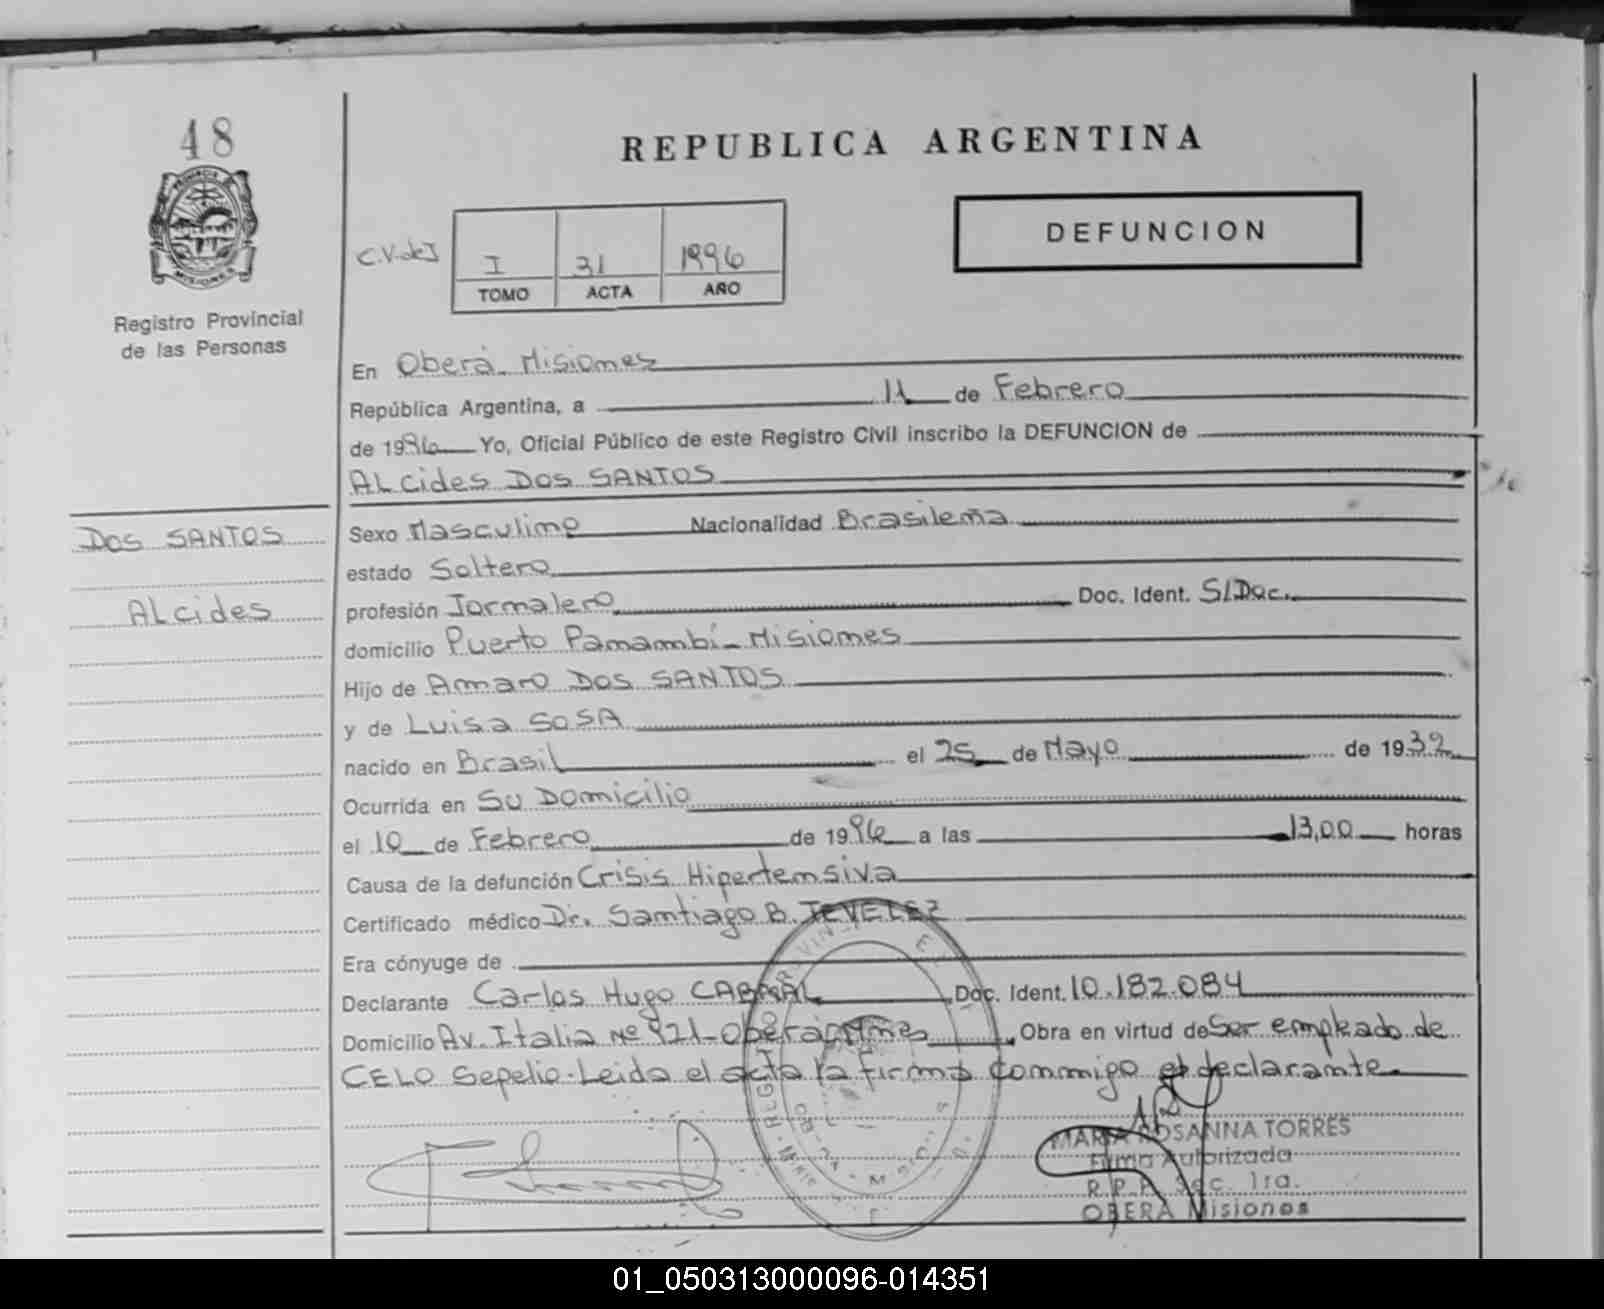 48
REPUBLICA ARGENTINA
DEFUNCION
C.V.deJ
I 31 1996
TOMO ACTA AÑO
Registro Provincial
de las Personas
En Oberá - Misiones
República Argentina, a 11 de Febrero
de 1996 Yo, Oficial Público de este Registro Civil inscribo la DEFUNCION de
ALcides Dos SANTOS
DOS SANTOS
ALcides
Sexo Masculino Nacionalidad Brasileña
estado Soltero
profesión Jornalero Doc. Ident. S/Doc.
domicilio Puerto Panambí - Misiones
Hijo de Amaro Dos SANTOS
y de Luisa SOSA
nacido en Brasil el 25 de Mayo de 1932
Ocurrida en Su Domicilio
el 10 de Febrero de 1996 a las 13,00 horas
Causa de la defunción Crisis Hipertensiva
Certificado médico Dr. Santiago B.
Era cónyuge de
Declarante Carlos Hugo CABRAL Doc. Ident. 10.182.084
Domicilio Av. Italia Nº 921 - Oberá Mnes Obra en virtud de Ser empleado de
CELO Sepelio. Leida el acta la firma conmigo el declarante
MARIA ROSANNA TORRES
Firma Autorizada
R.P.P. Sec. 1ra.
OBERA Misiones
01_050313000096-014351